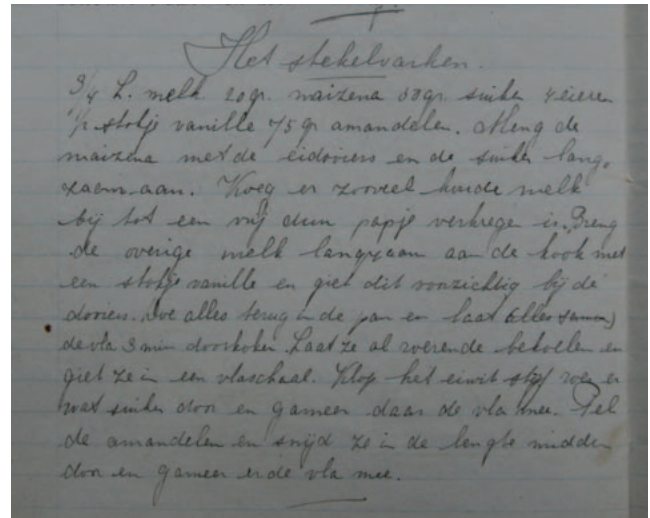 Het stekelvarken.
3/4 L. melk 20 gr. maizena 80 gr. suiker 4 eieren
1/2 stokje vanille 75 gr amandelen. Meng de
maizena met de eidoriers en de suiker lang,
zaam aan. Voeg er zooveel koude melk
bij tot een vrij dun papje verkrege is. Breng
de overige melk langzaam aan de kook met
een stokje vanille en giet dit voorzichtig bij de
doriers. Doe alles terug in de pan en laat (alles samen)
de vla 3 min doorkoken. Laat ze al roerende bekoelen en
giet ze in een vlaschaal. Klop het eiwit stijf roer er
wat suiker door en garneer daar de vla mee. Pel
de amandelen en snijd ze in de lengte midden
door en garneer er de vla mee.